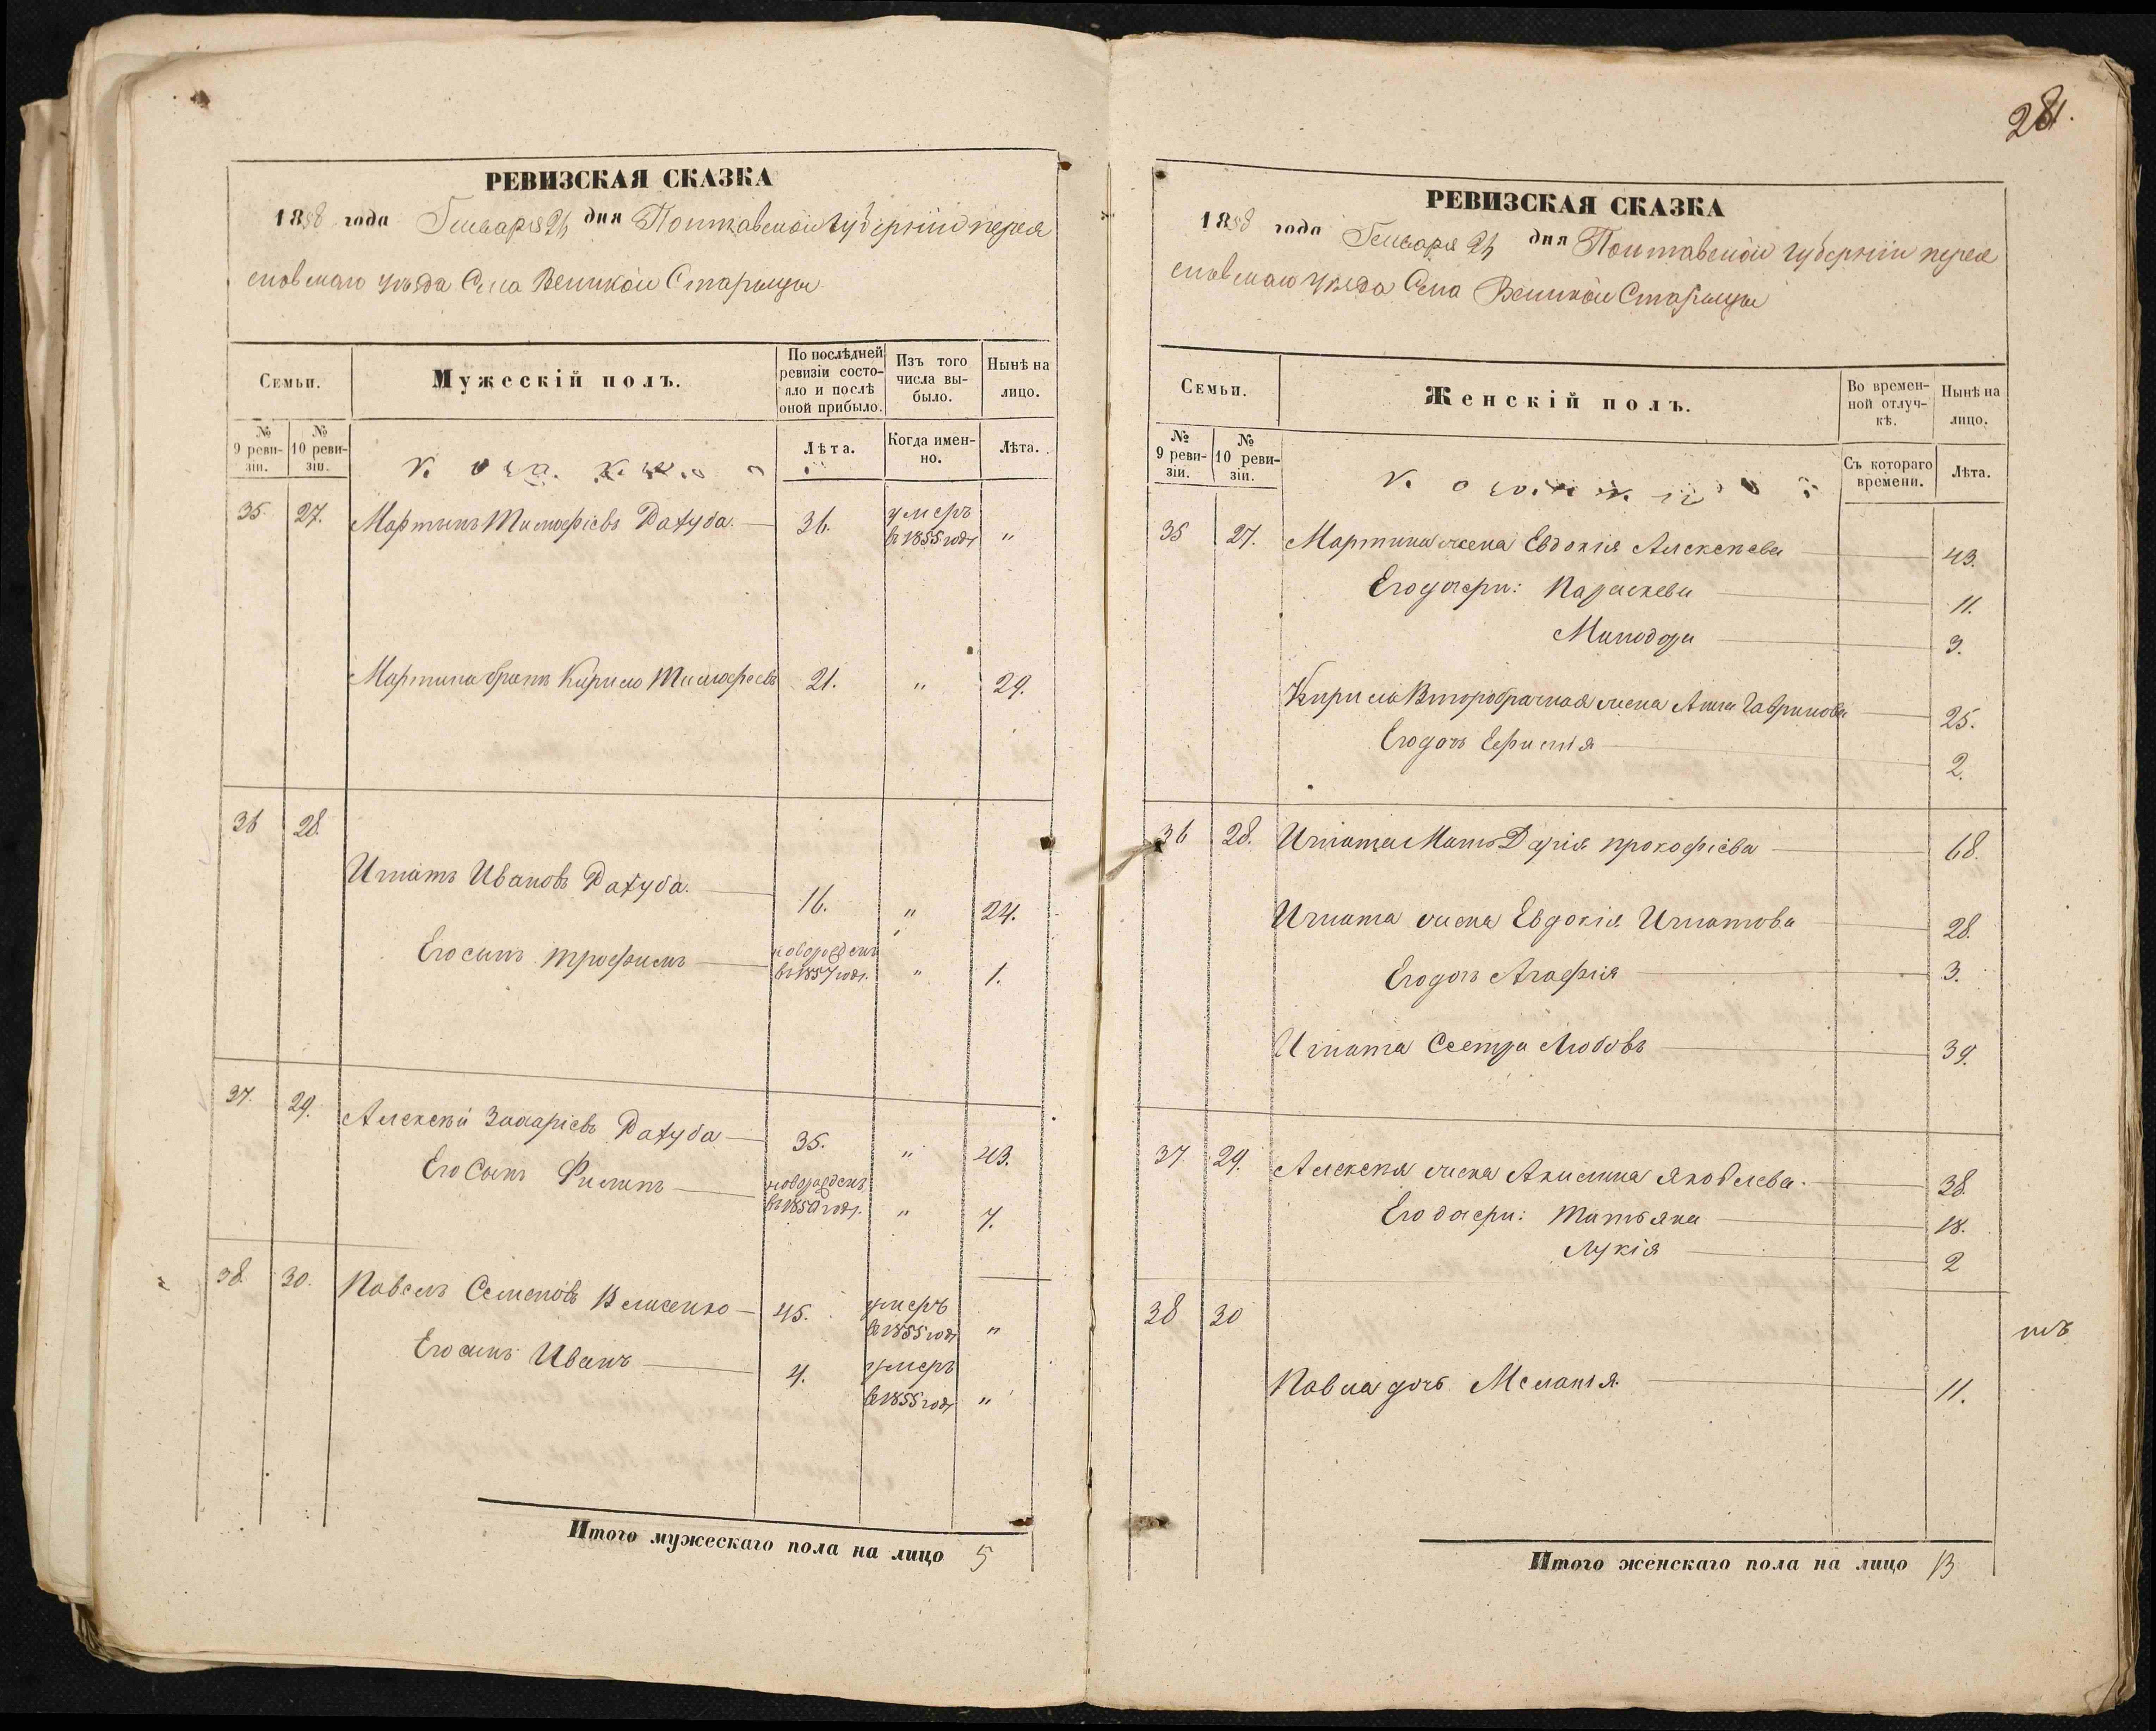 281.
РЕВИЗСКАЯ СКАЗКА
1858 года Генваря дня Полтавской губерніи перея
славскаго уѣзда Села Великой Старицы
Семьи.
Мужескій полъ.
По послѣдней ревизіи состояло и послѣ оной прибыло.
Изъ того числа выбыло.
Нынѣ на лицо.
№ 9 ревизіи.
№ 10 ревизіи.
Лѣта.
Когда именно.
Лѣта.
35. 27. Мартинъ Тимофіевъ 36. умеръ
в 1855 годꙋ "
Мартина братъ Кирило Тимофеевъ 21. " 29.
36 28.
Игнатъ Ивановъ 16. " 24.
Его сынъ трофимъ новорожденъ
въ 1857 год. " 1.
37. 29. Алексѣй Захаріевъ 35. " 43.
Его Сынъ Филипъ новорожденъ
" 7.
38. 30. Павелъ Семеновъ 45. умеръ
в 1855 год "
Его сынъ Иванъ 4. умеръ
в 1855 год "
Итого мужескаго пола на лицо 5
РЕВИЗСКАЯ СКАЗКА
1858 года Генваря дня Полтавской губерніи перея
славскаго уѣзда Села Великой Старицы
Семьи.
Женскій полъ.
Во временной отлучкѣ.
Нынѣ на лицо.
№ 9 ревизіи.
№ 10 ревизіи.
Съ котораго времени.
Лѣта.
35 27. Мартина жена Евдокія Алексѣева 43.
Его дочери: Параскева 11.
Минодора 3.
Кирила Второбрачная жена Анна Гаврилова 25.
Его дочь Ефимія 2.
36 28. Игната Мать Дарія прокофіева 68.
Игната жена Евдокія Игнатова 28.
Его дочь Агафія 3.
Игната Сестра Любовъ 39.
37. 29. Алексѣя жена Акилина Яковлева. 38.
Его дочери: Татьяна 18.
Лукія 2
38 30
Павла дочь Меланія. 11.
Итого женскаго пола на лицо 13